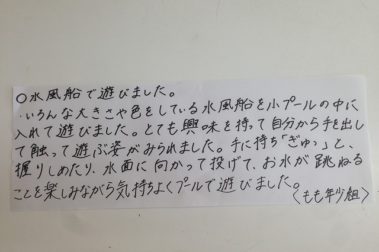 ○水風船で遊びました。
・いろんな大きさや色をしている水風船を小プールの中に
入れて遊びました。とても興味を持って自分から手を出し
て触って遊ぶ姿がみられました。手に持ち「ぎゅっ」と、
握りしめたり、水面に向かって投げて、お水が跳ねる
ことを楽しみながら気持ちよくプールで遊びました。
〈もも年少組〉